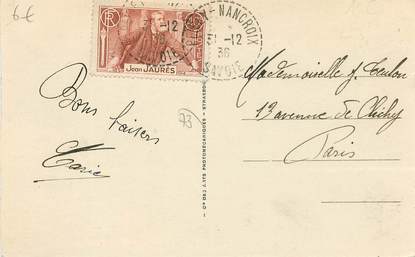 6€
RF
Jean JAURÈS
-12
-NANCROIX
-12
36
SAVOIE
Bons baisers
Marie
73
Mademoiselle J. Toulon
13 avenue de Clichy
Paris
Cie DES ARTS PHOTOMÉCANIQUES - STRASBOURG